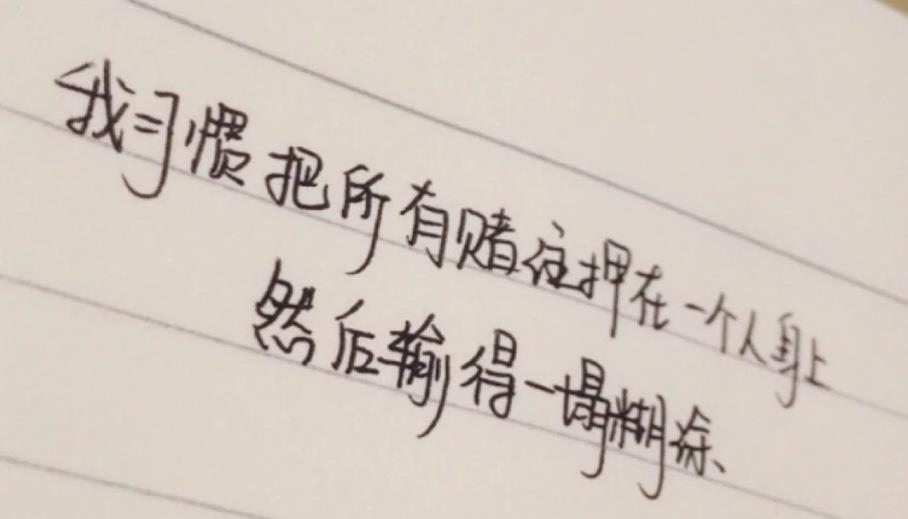 我习惯把所有赌住押在一个人身上
然后输得一塌糊涂、